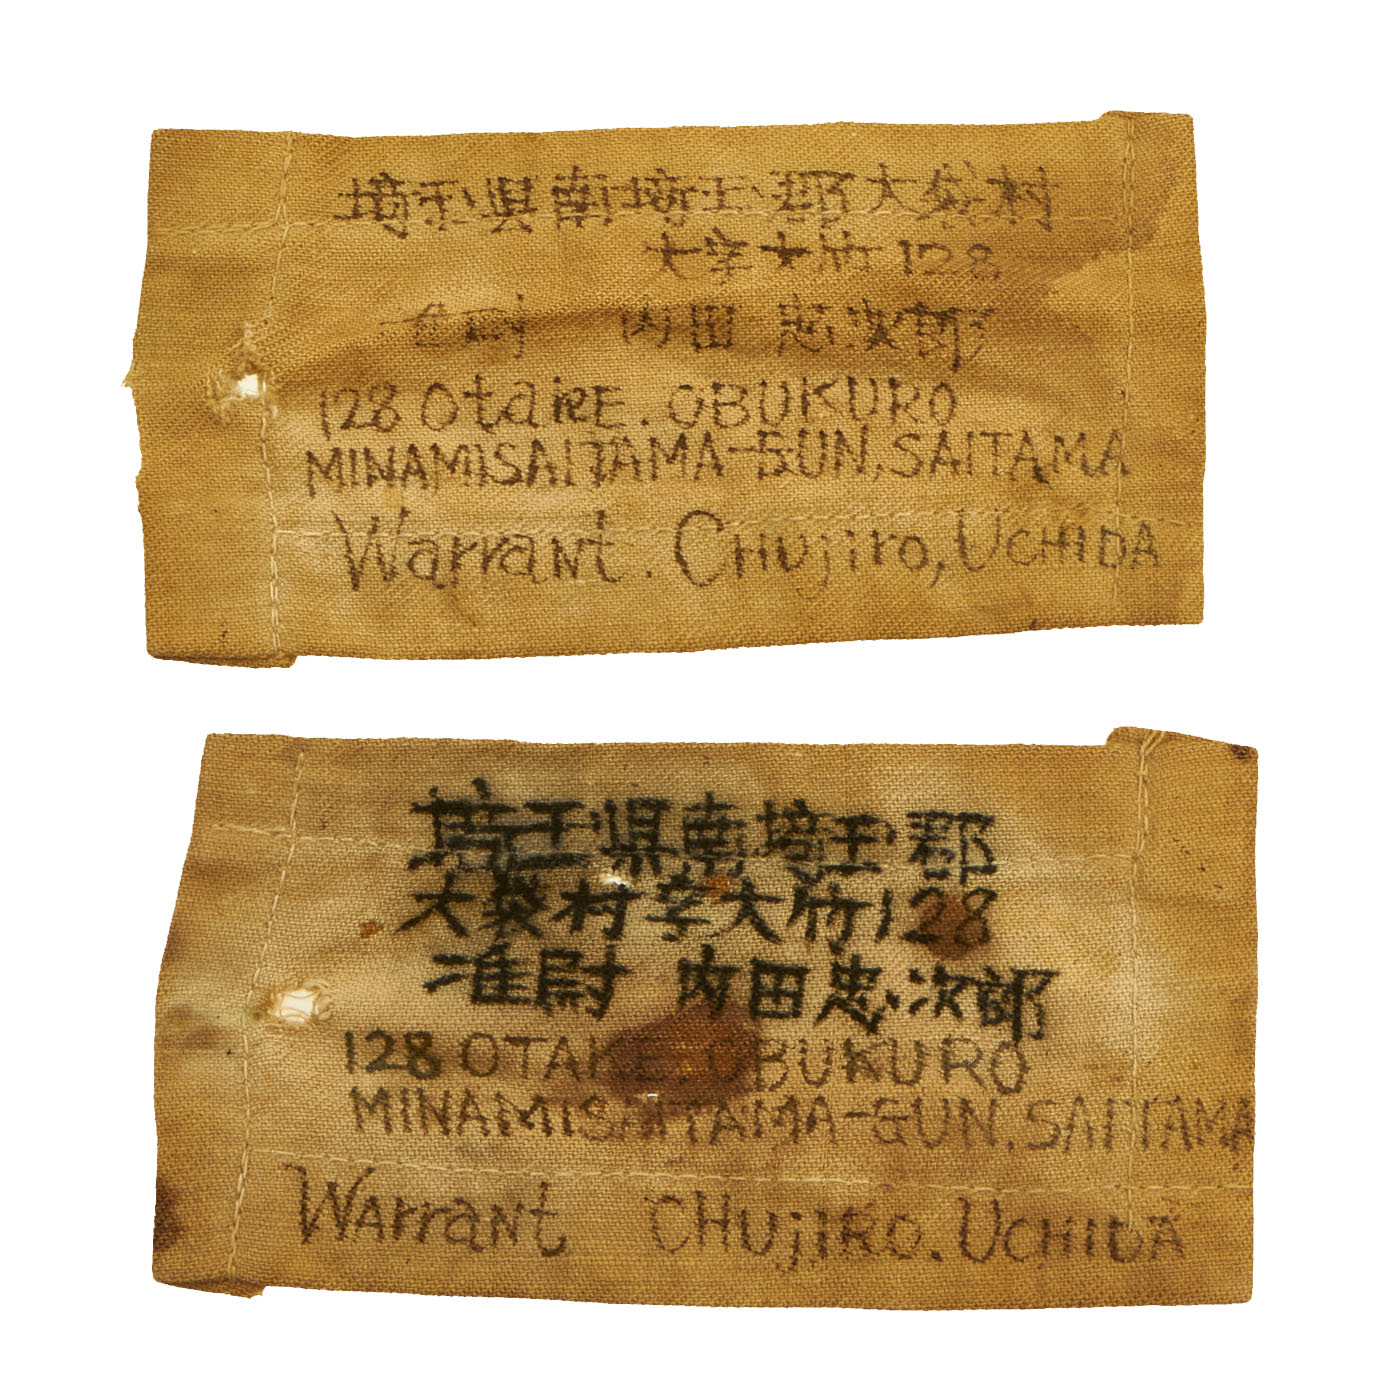 埼玉県南埼玉郡大袋村
大字大竹128
准尉 内田忠次郎
128 OtakE. OBUKURO
MINAMISAITAMA-GUN, SAITAMA
Warrant. CHUjiro, UCHIDA
埼玉県南埼玉郡
大袋村字大竹128
准尉 内田忠次郎
128 OTAKE. OBUKURO
MINAMISAITAMA-GUN. SAITAMA
WArraNt CHUjIRO. UCHIDA